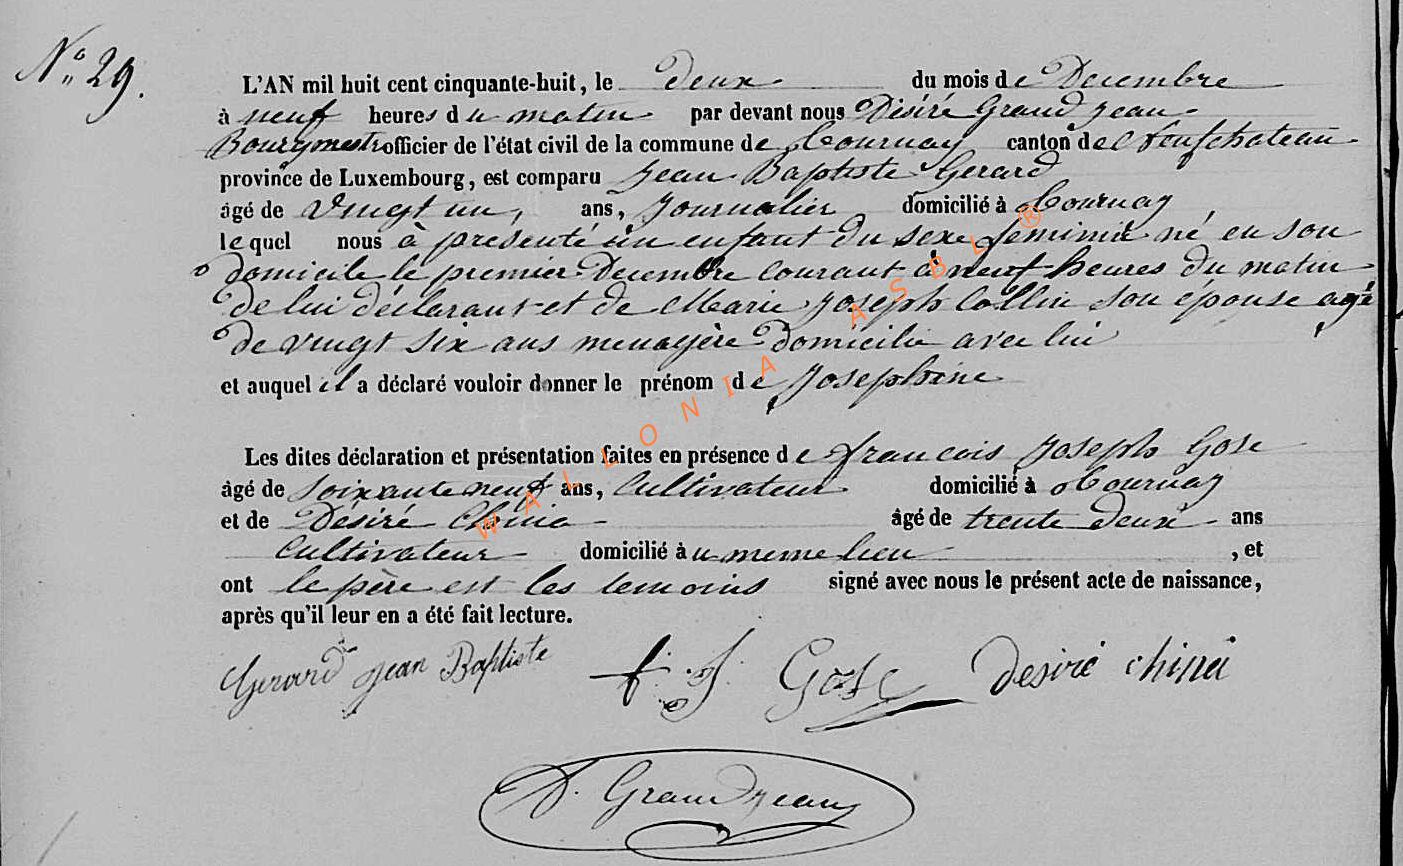 N° 29.
L'AN mil huit cent cinquante-huit, le deux du mois de Decembre
à neuf heures du matin par devant nous Désiré Grandjean
Bourgmestre officier de l'état civil de la commune de Tournay canton de Neufchateau
province de Luxembourg, est comparu Jean Baptiste Gerard
âgé de vingt un, ans, journalier domicilié à Tournay
lequel nous à présenté un enfant du sexe feminin né en son
domicile le premier Decembre courant à neuf heures du matin
de lui déclarant et de Marie Joseph Collin son épouse agé
de vingt six ans menagère domicilié avec lui
et auquel il a déclaré vouloir donner le prénom de Josephine
Les dites déclaration et présentation faites en présence de francois Joseph Gose
âgé de soixante neuf ans, Cultivateur domicilié à Tournay
et de Désiré Chinà âgé de trente deux ans
Cultivateur domicilié àu meme lieu , et
ont le père est les temoins signé avec nous le présent acte de naissance,
après qu'il leur en a été fait lecture.
Gerard Jean Baptiste f. J. Gose Desiré Chinà
D. Grandjean
WALLONIA ASBL ®